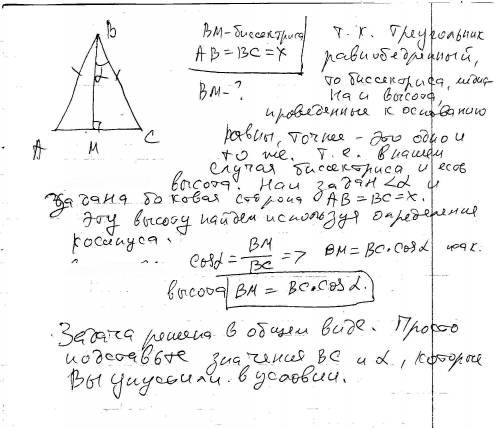 B
α
A
M
C
BM-биссектриса
AB=BC=x
BM-?
Т.К. Треугольник
равнобедренный,
то биссектриса, медиа-
на и высота,
проведенные к основанию
равны, точнее - это одно и
то же. Т.е. в нашем
случая биссектриса и есть
высота. Нам задан <α и
Задана боковая сторона AB=BC=x.
Эту высоту найдем используя определение
косинуса.
cosα = BM/BC => BM=BC·cosα
высота BM = BC·cosα.
Задача решена в общем виде. Просто
подставьте значения BC и α, которые
Вы упустили в условии.